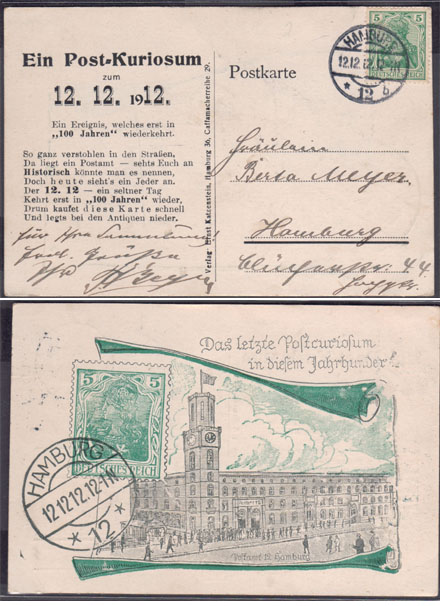 Ein Post-Kuriosum
zum
12. 12. 1912.
Ein Ereignis, welches erst in
„100 Jahren" wiederkehrt.
So ganz verstohlen in den Straßen,
Da liegt ein Postamt — sehts Euch an
Historisch könnte man es nennen,
Doch heute sieht's ein Jeder an.
Der 12. 12 — ein seltner Tag
Kehrt erst in „100 Jahren" wieder,
Drum kaufet diese Karte schnell
Und legts bei den Antiquen nieder.
Für Ihre Sammlung!
Verlag Ernst Katzenstein, Hamburg 36, Caffamacherreihe 29.
Postkarte
5 5
DEUTSCHES REICH
HAMBURG
12.12.12.12-
* 12 b
Fräulein
Berta Meyer.
Hamburg
44
Das letzte Postcuriosum
in diesem Jahrhundert
5 5
DEUTSCHES REICH
HAMBURG
12.12.12.12-1N
* 12 *
Postamt 12 Hamburg